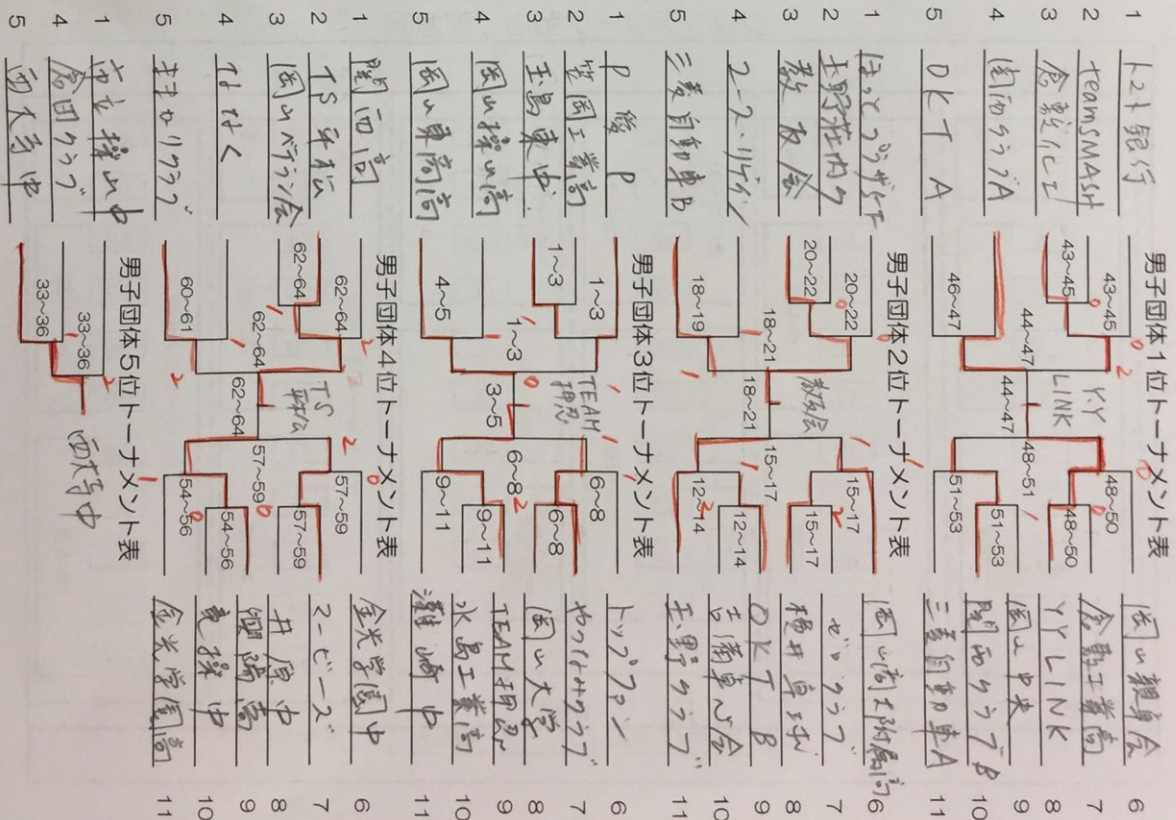 男子団体1位トーナメント表
1 トマト銀行
2 TeamSMASH
3 倉敷化工
4 関西クラブA
5 OKT A
43～45
43～45
46～47
44～47
44～47
Y.Y LINK
48～51
48～50
48～50
51～53
51～53
岡山親卓会 6
倉敷工業高 7
YY LINK 8
岡山中央 9
関西クラブB 10
三菱自動車A 11
男子団体2位トーナメント表
1
2 玉野荘内ク
3 教友会
4
5 三菱自動車B
20～22
20～22
18～19
18～21
18～21
教友会
15～17
15～17
15～17
12～14
12～14
岡山商大附属高 6
ゼロクラブ 7
桜井卓球 8
OKT B 9
吉備卓心会 10
玉野クラブ 11
男子団体3位トーナメント表
1 P 後 P
2 笠岡工業高
3 玉島東中
4 岡山操山高
5 岡山東商高
1～3
1～3
4～5
1～3
3～5
TEAM 押忍
6～8
6～8
6～8
9～11
9～11
トップファン 6
やつはみクラブ 7
岡山大学 8
TEAM押忍 9
水島工業高 10
灘崎中 11
男子団体4位トーナメント表
1 関西高
2 TS平松
3 岡山ベテラン会
4 なはく
5 キキョリクラブ
62～64
62～64
60～61
62～64
62～64
TS
57～59
57～59
57～59
54～56
54～56
金光学園中 6
スービーズ 7
井原中 8
9
竜操中 10
金光学園高 11
男子団体5位トーナメント表
1 市立操山中
4 倉田クラブ
5 西大寺中
33～36
33～36
西大寺中